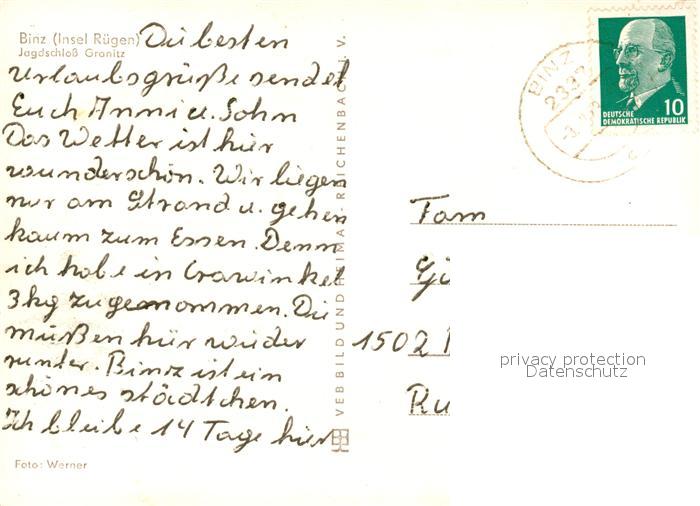 Binz (Insel Rügen)
Jagdschloß Granitz
Die besten
Urlaubsgrüße sendet
Euch Anni u. Sohn
Das Wetter ist hier
wunderschön. Wir liegen
nur am Strand u. gehen
kaum zum Essen. Denn
ich habe in Crawinkel
3kg zugenommen. Die
müßen hier wieder
runter. Binz ist ein
schönes städtchen.
Ich bleibe 14 Tage hier
Foto: Werner
VEB BILD UND HEIMAT REICHENBACH I. V.
BINZ
2337
DEUTSCHE
DEMOKRATISCHE REPUBLIK
10
Fam
1502
Ru
privacy protection
Datenschutz